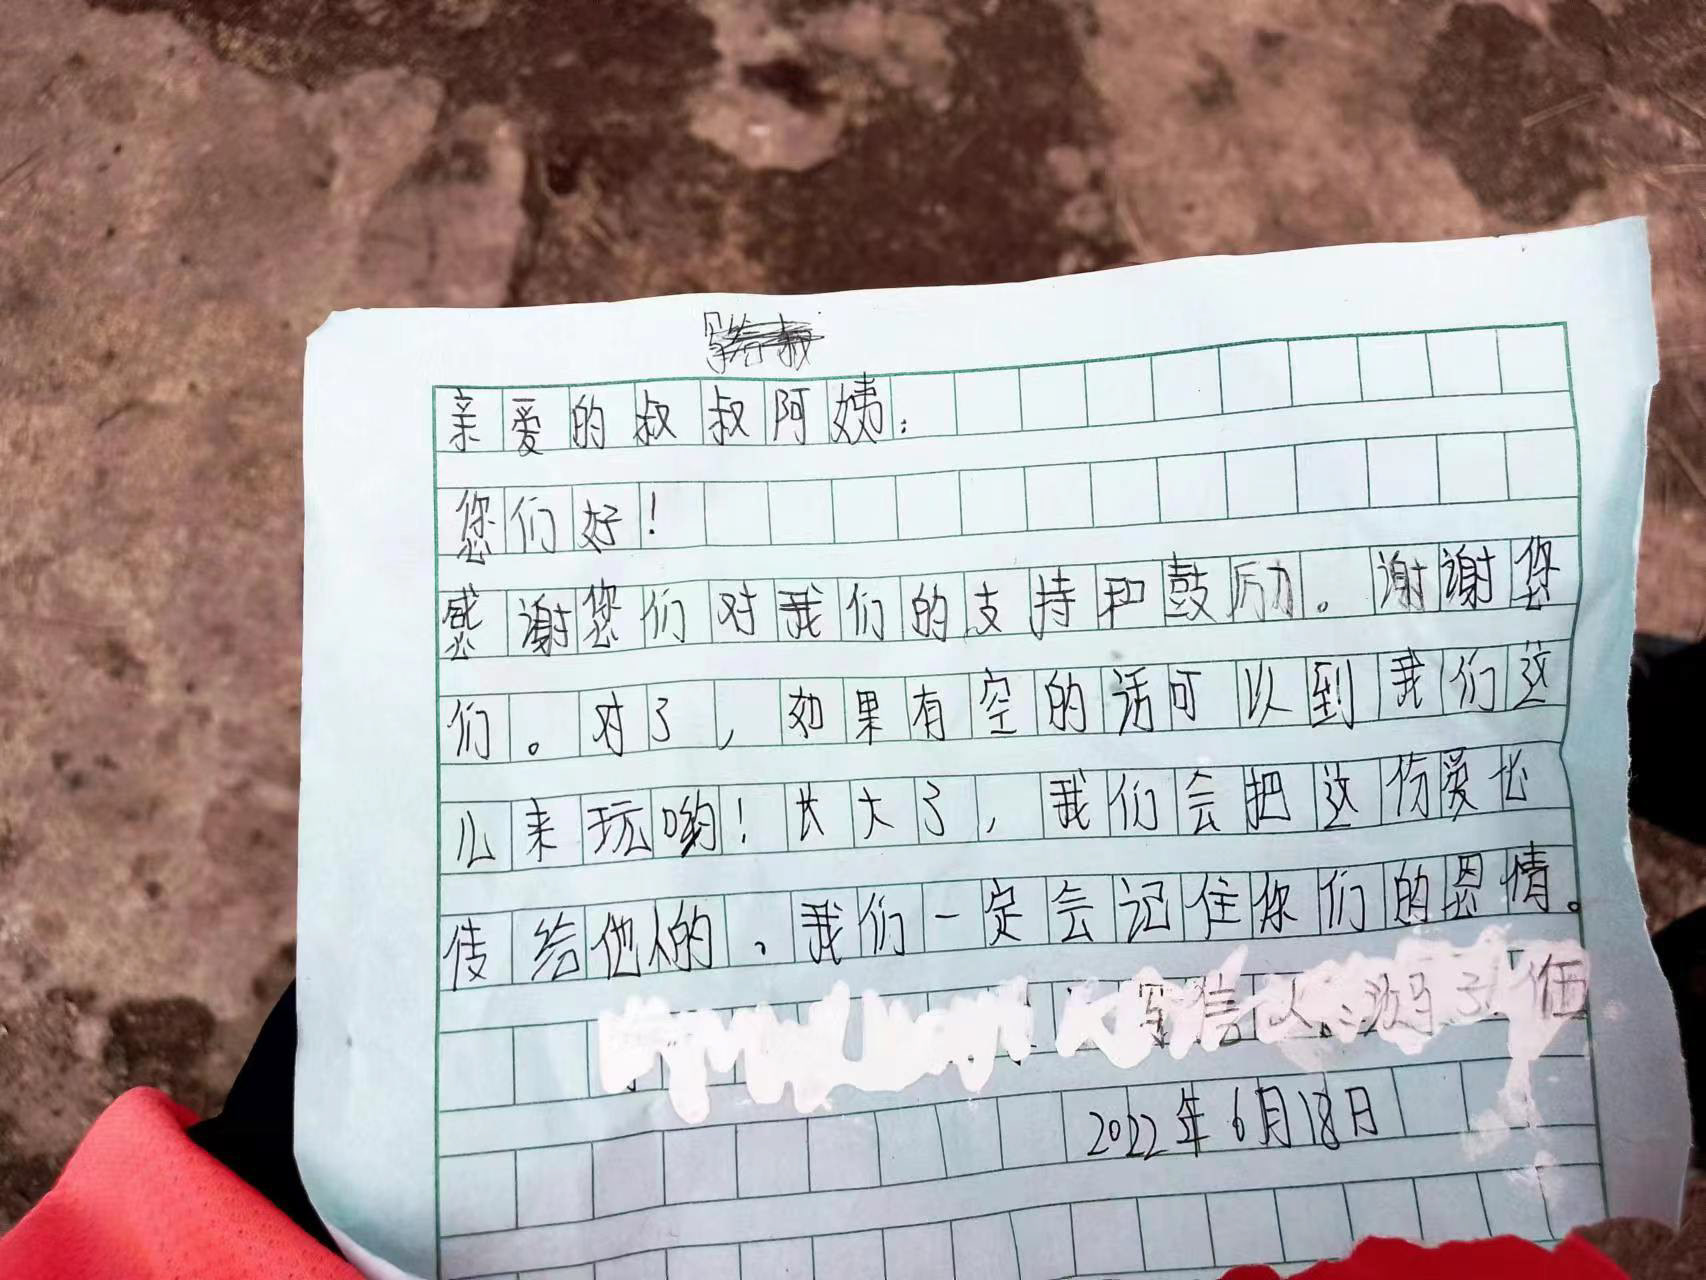 亲爱的叔叔阿姨：
您们好！
感谢您们对我们的支持和鼓厉力。谢谢您
们。对了，如果有空的话可以到我们这
儿来玩哟！长大了，我们会把这份爱也
传给他人的，我们一定会记住你们的恩情。
写信人：
2022年6月18日